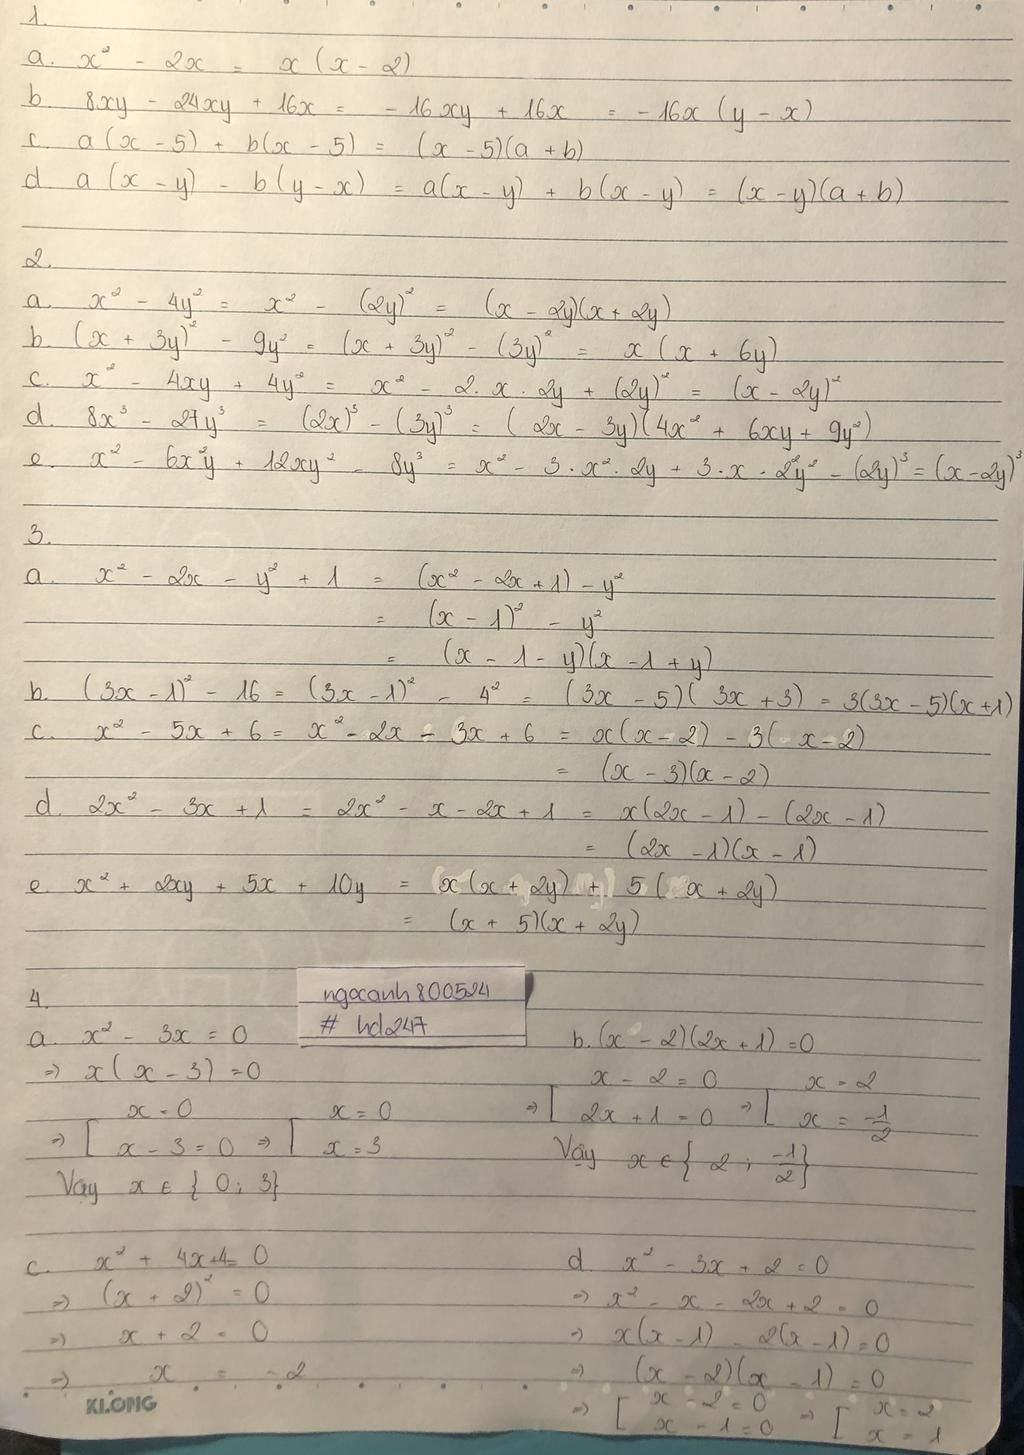 1.
a. x² - 2x = x(x - 2)
b 8xy - 24xy + 16x = -16xy + 16x = -16x(y - x)
c. a(x - 5) + b(x - 5) = (x - 5)(a + b)
d a(x - y) - b(y - x) = a(x - y) + b(x - y) = (x - y)(a + b)
2.
a. x² - 4y² = x² - (2y)² = (x - 2y)(x + 2y)
b. (x + 3y)² - 9y² = (x + 3y)² - (3y)² = x(x + 6y)
c. x² - 4xy + 4y² = x² - 2.x.2y + (2y)² = (x - 2y)²
d. 8x³ - 27y³ = (2x)³ - (3y)³ = (2x - 3y)(4x² + 6xy + 9y²)
e. x² - 6x²y + 12xy² - 8y³ = x² - 3.x².2y + 3.x.2²y² - (2y)³ = (x - 2y)³
3.
a. x² - 2x - y² + 1 = (x² - 2x + 1) - y²
= (x - 1)² - y²
= (x - 1 - y)(x - 1 + y)
b. (3x - 1)² - 16 = (3x - 1)² - 4² = (3x - 5)(3x + 3) = 3(3x - 5)(x + 1)
c. x² - 5x + 6 = x² - 2x - 3x + 6 = x(x - 2) - 3(x - 2)
= (x - 3)(x - 2)
d. 2x² - 3x + 1 = 2x² - x - 2x + 1 = x(2x - 1) - (2x - 1)
= (2x - 1)(x - 1)
e x² + 2xy + 5x + 10y = x(x + 2y) + 5(x + 2y)
= (x + 5)(x + 2y)
ngocanh800524
# hd247
4.
a. x² - 3x = 0
=> x(x - 3) = 0
x = 0 x = 0
=> [ x - 3 = 0 => [ x = 3
Vậy x ∈ { 0; 3}
b. (x - 2)(2x + 1) = 0
x - 2 = 0 x = 2
=> [ 2x + 1 = 0 => [ x = -1/2
Vậy x ∈ { 2 ; -1/2 }
c. x² + 4x + 4 = 0
=> (x + 2)² = 0
=> x + 2 = 0
=> x = -2
d. x² - 3x + 2 = 0
=> x² - x - 2x + 2 = 0
=> x(x - 1) - 2(x - 1) = 0
=> (x - 2)(x - 1) = 0
x - 2 = 0 x = 2
=> [ x - 1 = 0 => [ x = 1
KLONG